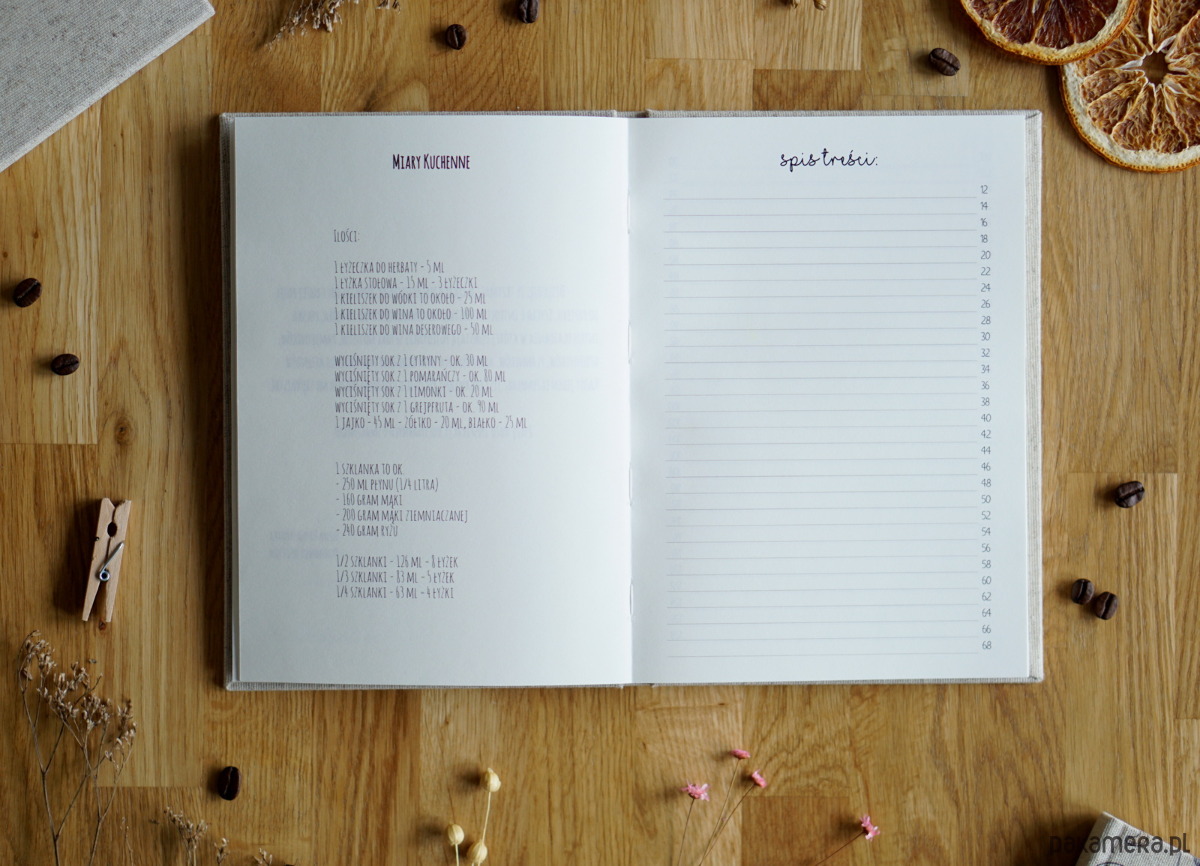 Miary Kuchenne
Ilości:
1 łyżeczka do herbaty - 5 ml
1 łyżka stołowa - 15 ml - 3 łyżeczki
1 kieliszek do wódki to około - 25 ml
1 kieliszek do wina to około - 100 ml
1 kieliszek do wina deserowego - 50 ml
wyciśnięty sok z 1 cytryny - ok. 30 ml
wyciśnięty sok z 1 pomarańczy - ok. 80 ml
wyciśnięty sok z 1 limonki - ok. 20 ml
wyciśnięty sok z 1 grejpfruta - ok. 90 ml
1 jajko - 45 ml - żółtko - 20 ml, białko - 25 ml
1 szklanka to ok.
- 250 ml płynu (1/4 litra)
- 160 gram mąki
- 200 gram mąki ziemniaczanej
- 240 gram ryżu
1/2 szklanki - 126 ml - 8 łyżek
1/3 szklanki - 83 ml - 5 łyżek
1/4 szklanki - 63 ml - 4 łyżki
spis treści:
12
14
16
18
20
22
24
26
28
30
32
34
36
38
40
42
44
46
48
50
52
54
56
58
60
62
64
66
68
pakamera.pl